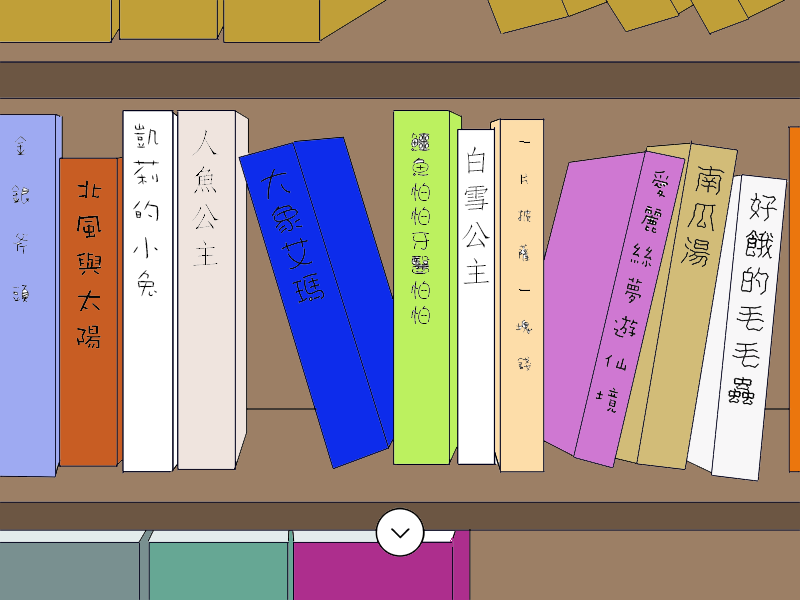 金銀斧頭
北風與太陽
凱莉的小兔
人魚公主
大象艾瑪
鱷魚怕怕牙醫怕怕
白雪公主
一片披薩一塊錢
愛麗絲夢遊仙境
南瓜湯
好餓的毛毛蟲